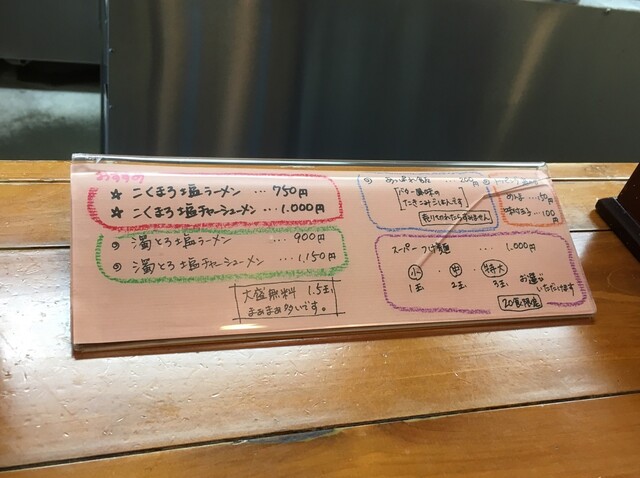 おすすめ
☆ こくまろ塩ラーメン … 750円
☆ こくまろ塩チャーシューメン … 1.000円
◎ 濁とろ塩ラーメン … 900円
◎ 濁とろ塩チャーシューメン … 1,150円
大盛無料 1.5玉
まあまあ多いです。
200円
「バター風味の
たきこみごはんです」
売り切れたらすみません
150円
味玉 100円
スーパーつけ麺 … 1.000円
小 ・ 中 ・ 特大
1玉 2玉 3玉
お選び
いただけます
20食限定